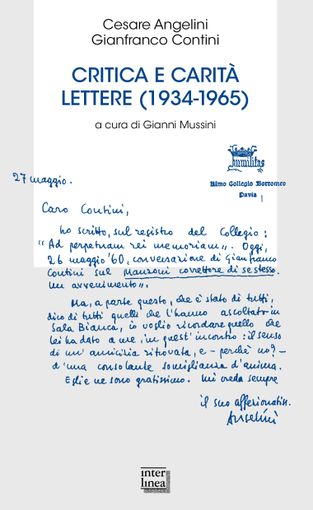 Cesare Angelini
Gianfranco Contini
CRITICA E CARITÀ
LETTERE (1934-1965)
a cura di Gianni Mussini
humilitas
Almo Collegio Borromeo
Pavia
27 maggio.
Caro Contini,
ho scritto, sul registro del Collegio:
"Ad perpetuam rei memoriam". Oggi,
26 maggio '60, conversazione di Gianfranco
Contini sul Manzoni correttore di se stesso.
Un avvenimento".
Ma, a parte questo, che è stato di tutti,
dico di tutti quelli che l'hanno ascoltato in
Sala Bianca, io voglio ricordare quello che
lei ha dato a me, in quest'incontro: il senso
di un'amicizia ritrovata, e - perché no? -
d'una consolante somiglianza d'anima.
E gliene sono gratissimo. Mi creda sempre
il suo affezionatiss.
Angelini
inter
linea